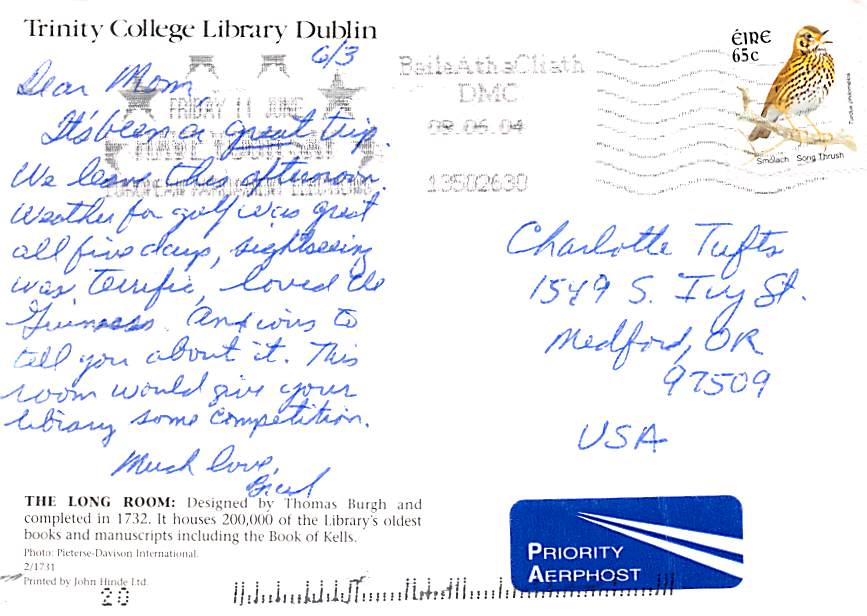 Trinity College Library Dublin
6/3
Dear Mom,
It's been a great trip.
We leave this afternoon.
Weather for golf was great
all five days, sightseeing
was terrific, loved the
Guinness. Anxious to
tell you about it. This
room would give your
library some competition.
Much love,
THE LONG ROOM: Designed by Thomas Burgh and
completed in 1732. It houses 200,000 of the Library's oldest
books and manuscripts including the Book of Kells.
Photo: Pieterse-Davison International.
2/1731
Printed by John Hinde Ltd.
20
FRIDAY 11 JUNE
BaileAthaCliath
DMC
13502630
ÉIRE
65c
Smólach Song Thrush
Charlotte Tufts
1549 S. Ivy St.
Medford, OR
97509
USA
PRIORITY
AERPHOST